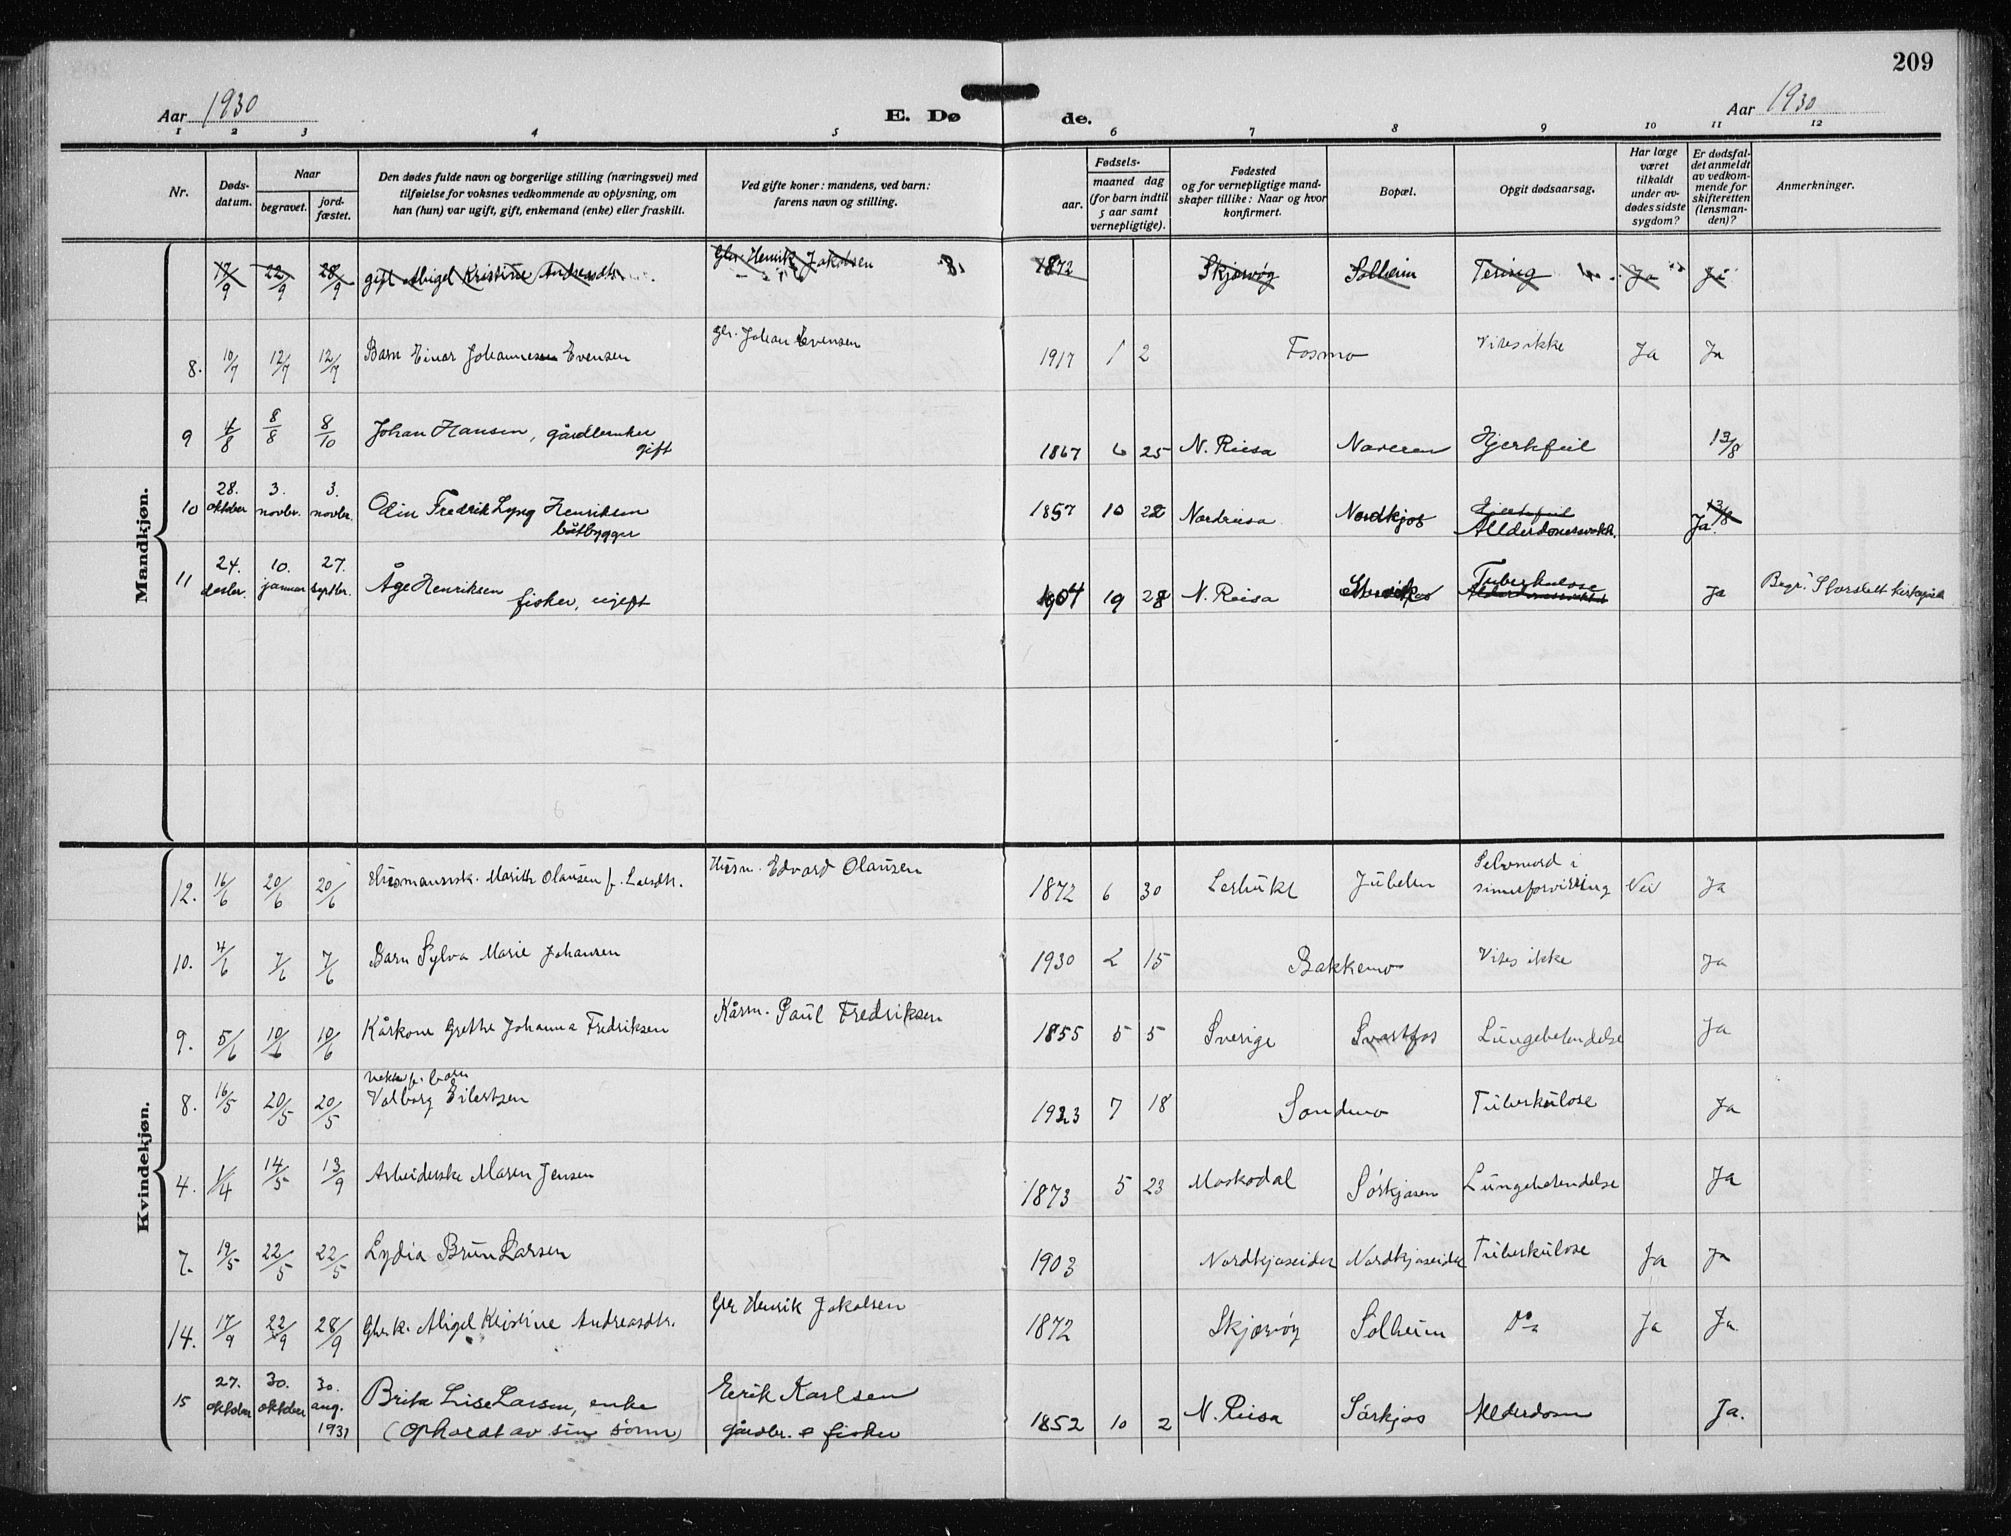 209
Aar 1930
E. Dø
de.
Aar 1930
1 2 3 4 5 6 7 8 9 10 11 12
Nr.
Døds-
datum.
Naar
begravet.
jord-
fæstet.
Den dødes fulde navn og borgerlige stilling (næringsvei) med
tilføielse for voksnes vedkommende av oplysning, om
han (hun) var ugift, gift, enkemand (enke) eller fraskilt.
Ved gifte koner: mandens, ved barn:
farens navn og stilling.
Fødsels-
aar.
maaned dag
(for barn indtil
5 aar samt
vernepligtige).
Fødested
og for vernepligtige mand-
skaper tillike: Naar og hvor
konfirmert.
Bopæl.
Opgit dødsaarsag.
Har læge
været
tilkaldt
under av-
dødes sidste
sygdom?
Er dødsfal-
det anmeldt
av vedkom-
mende for
skifteretten
(lensman-
den)?
Anmerkninger.
Mandkjøn.
17/9 22/9 28/9 gift Abigel Kristine Andreasdtr. Gbr. Henrik Jakobsen 1872 Skjærvøy Solheim Tæring Ja Ja
8. 10/7 12/7 12/7 Barn Einar Johannesen Evensen gbr. Johan Evensen 1917 1 2 Fosmo Vites ikke Ja Ja
9 4/8 8/8 8/10 Johan Hansen, gårdbruker
gift 1867 6 25 N. Reisa Naveren Hjertefeil 13/8
10 28. oktober 3. novbr. 3. novbr. Odin Fredrik Lyng Henriksen
båtbygger 1857 10 22 Nordreisa Nordkjos Hjertefeil
Allderdomssvakh. 13/8 Ja.
11 24. desbr. 10. januar 27. septbr. Åge Henriksen
fisker, ugift 1904 19 28 N. Reisa Storvik Tuberkulose
Alderdomssvakhet Ja Begr. Storslett kirkegård
Kvindekjøn.
12. 16/6 20/6 20/6 Husmannsk. Marith Olausen f. Larsdtr. Husm. Edvard Olausen 1872 6 30 Jubelen Selvmord i
sinnsforvirring Nei Ja
10. 4/6 7/6 7/6 Barn Sylva Marie Johansen 1930 2 15 Bakkemo Vites ikke Ja
9. 5/6 10/6 10/6 Kårkone Grethe Johanna Fredriksen Kårm. Paul Fredriksen 1855 5 5 Sverige Svartfos Lungebetendelse Ja
8. 16/5 20/5 20/5 barn
Valborg Eilertsen 1923 7 18 Sandmo Tuberkulose Ja
4. 1/4 14/5 13/9 Arbeiderske Maren Jensen 1873 5 23 Maskodal Sørkjosen Lungebetendelse Ja
7. 19/5 22/5 22/5 Lydia Brun Larsen 1903 Nordkjoseidet Nordkjoseidet Tuberkulose Ja Ja
14. 17/9 22/9 28/9 Gbrk. Abigel Kristine Andreasdtr. Gbr Henrik Jakobsen 1872 Skjærvøy Solheim Do Ja Ja
15 27. oktober 30. oktober 30. aug. 1931 Brita Lise Larsen, enke
(Opholdt av sin sønn) Eerik Karlsen
gårdbr. o fisker 1852 10 2 N. Reisa Sørkjos Allderdom Ja.